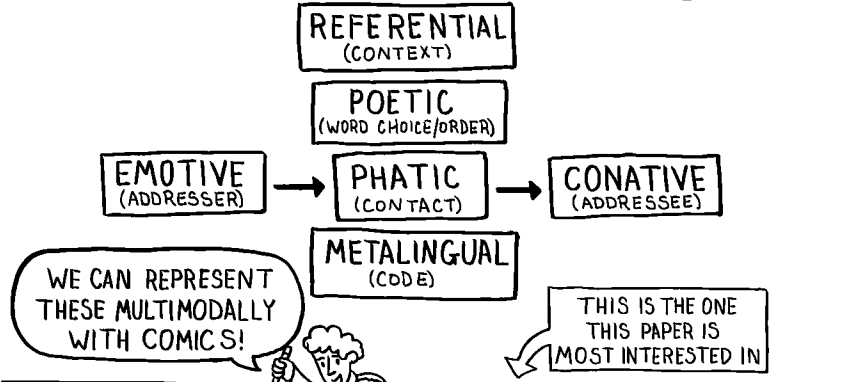 REFERENTIAL
(CONTEXT)
POETIC
(WORD CHOICE/ORDER)
EMOTIVE
(ADDRESSER)
PHATIC
(CONTACT)
CONATIVE
(ADDRESSEE)
METALINGUAL
(CODE)
WE CAN REPRESENT
THESE MULTIMODALLY
WITH COMICS!
THIS IS THE ONE
THIS PAPER IS
MOST INTERESTED IN